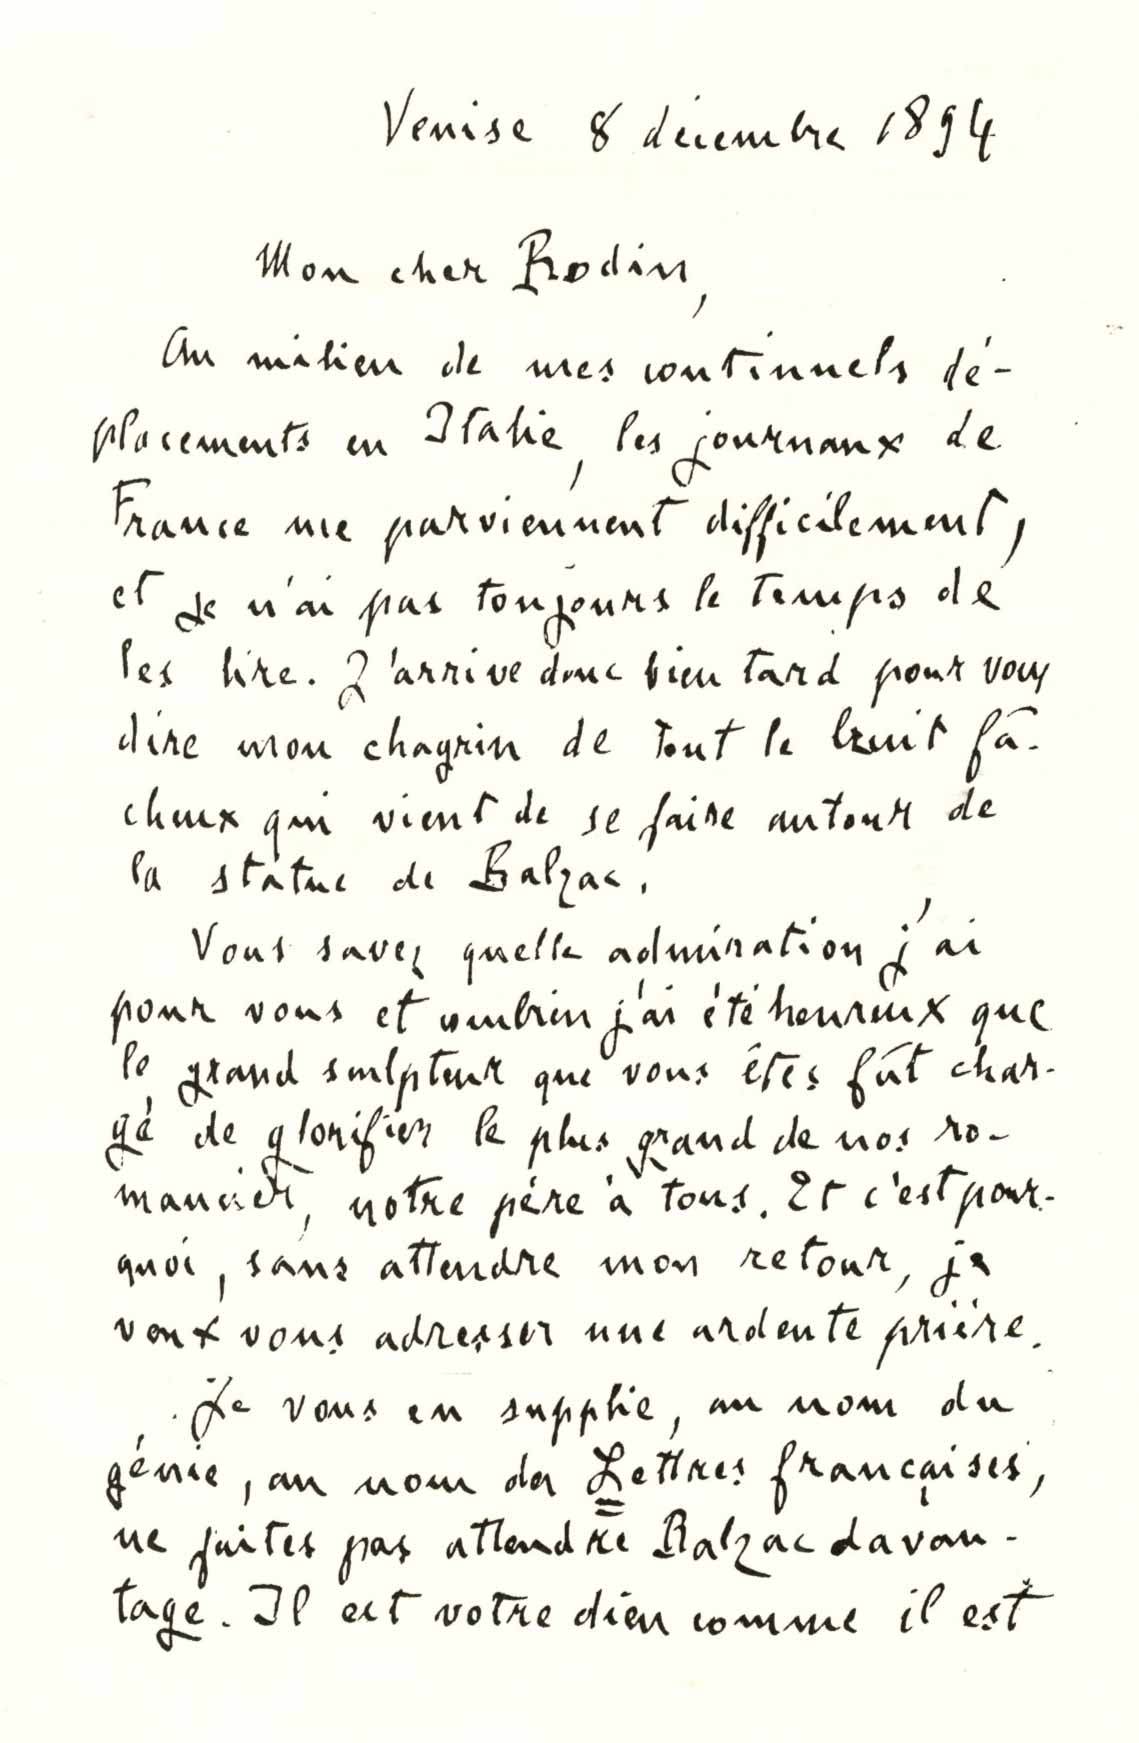 Venise 8 décembre 1894
Mon cher Rodin,
Au milieu de mes continuels dé-
placements en Italie, les journaux de
France me parviennent difficilement,
et je n'ai pas toujours le temps de
les lire. J'arrive donc bien tard pour vous
dire mon chagrin de tout le bruit fâ-
cheux qui vient de se faire autour de
la statue de Balzac.
Vous savez quelle admiration j'ai
pour vous et combien j'ai été heureux que
le grand sculpteur que vous êtes fût char-
gé de glorifier le plus grand de nos ro-
mancier, notre père à tous. Et c'est pour-
quoi, sans attendre mon retour, je
veux vous adresser une ardente prière.
Je vous en supplie, au nom du
génie, au nom des Lettres françaises,
ne faites pas attendre Balzac davan-
tage. Il est votre dieu comme il est